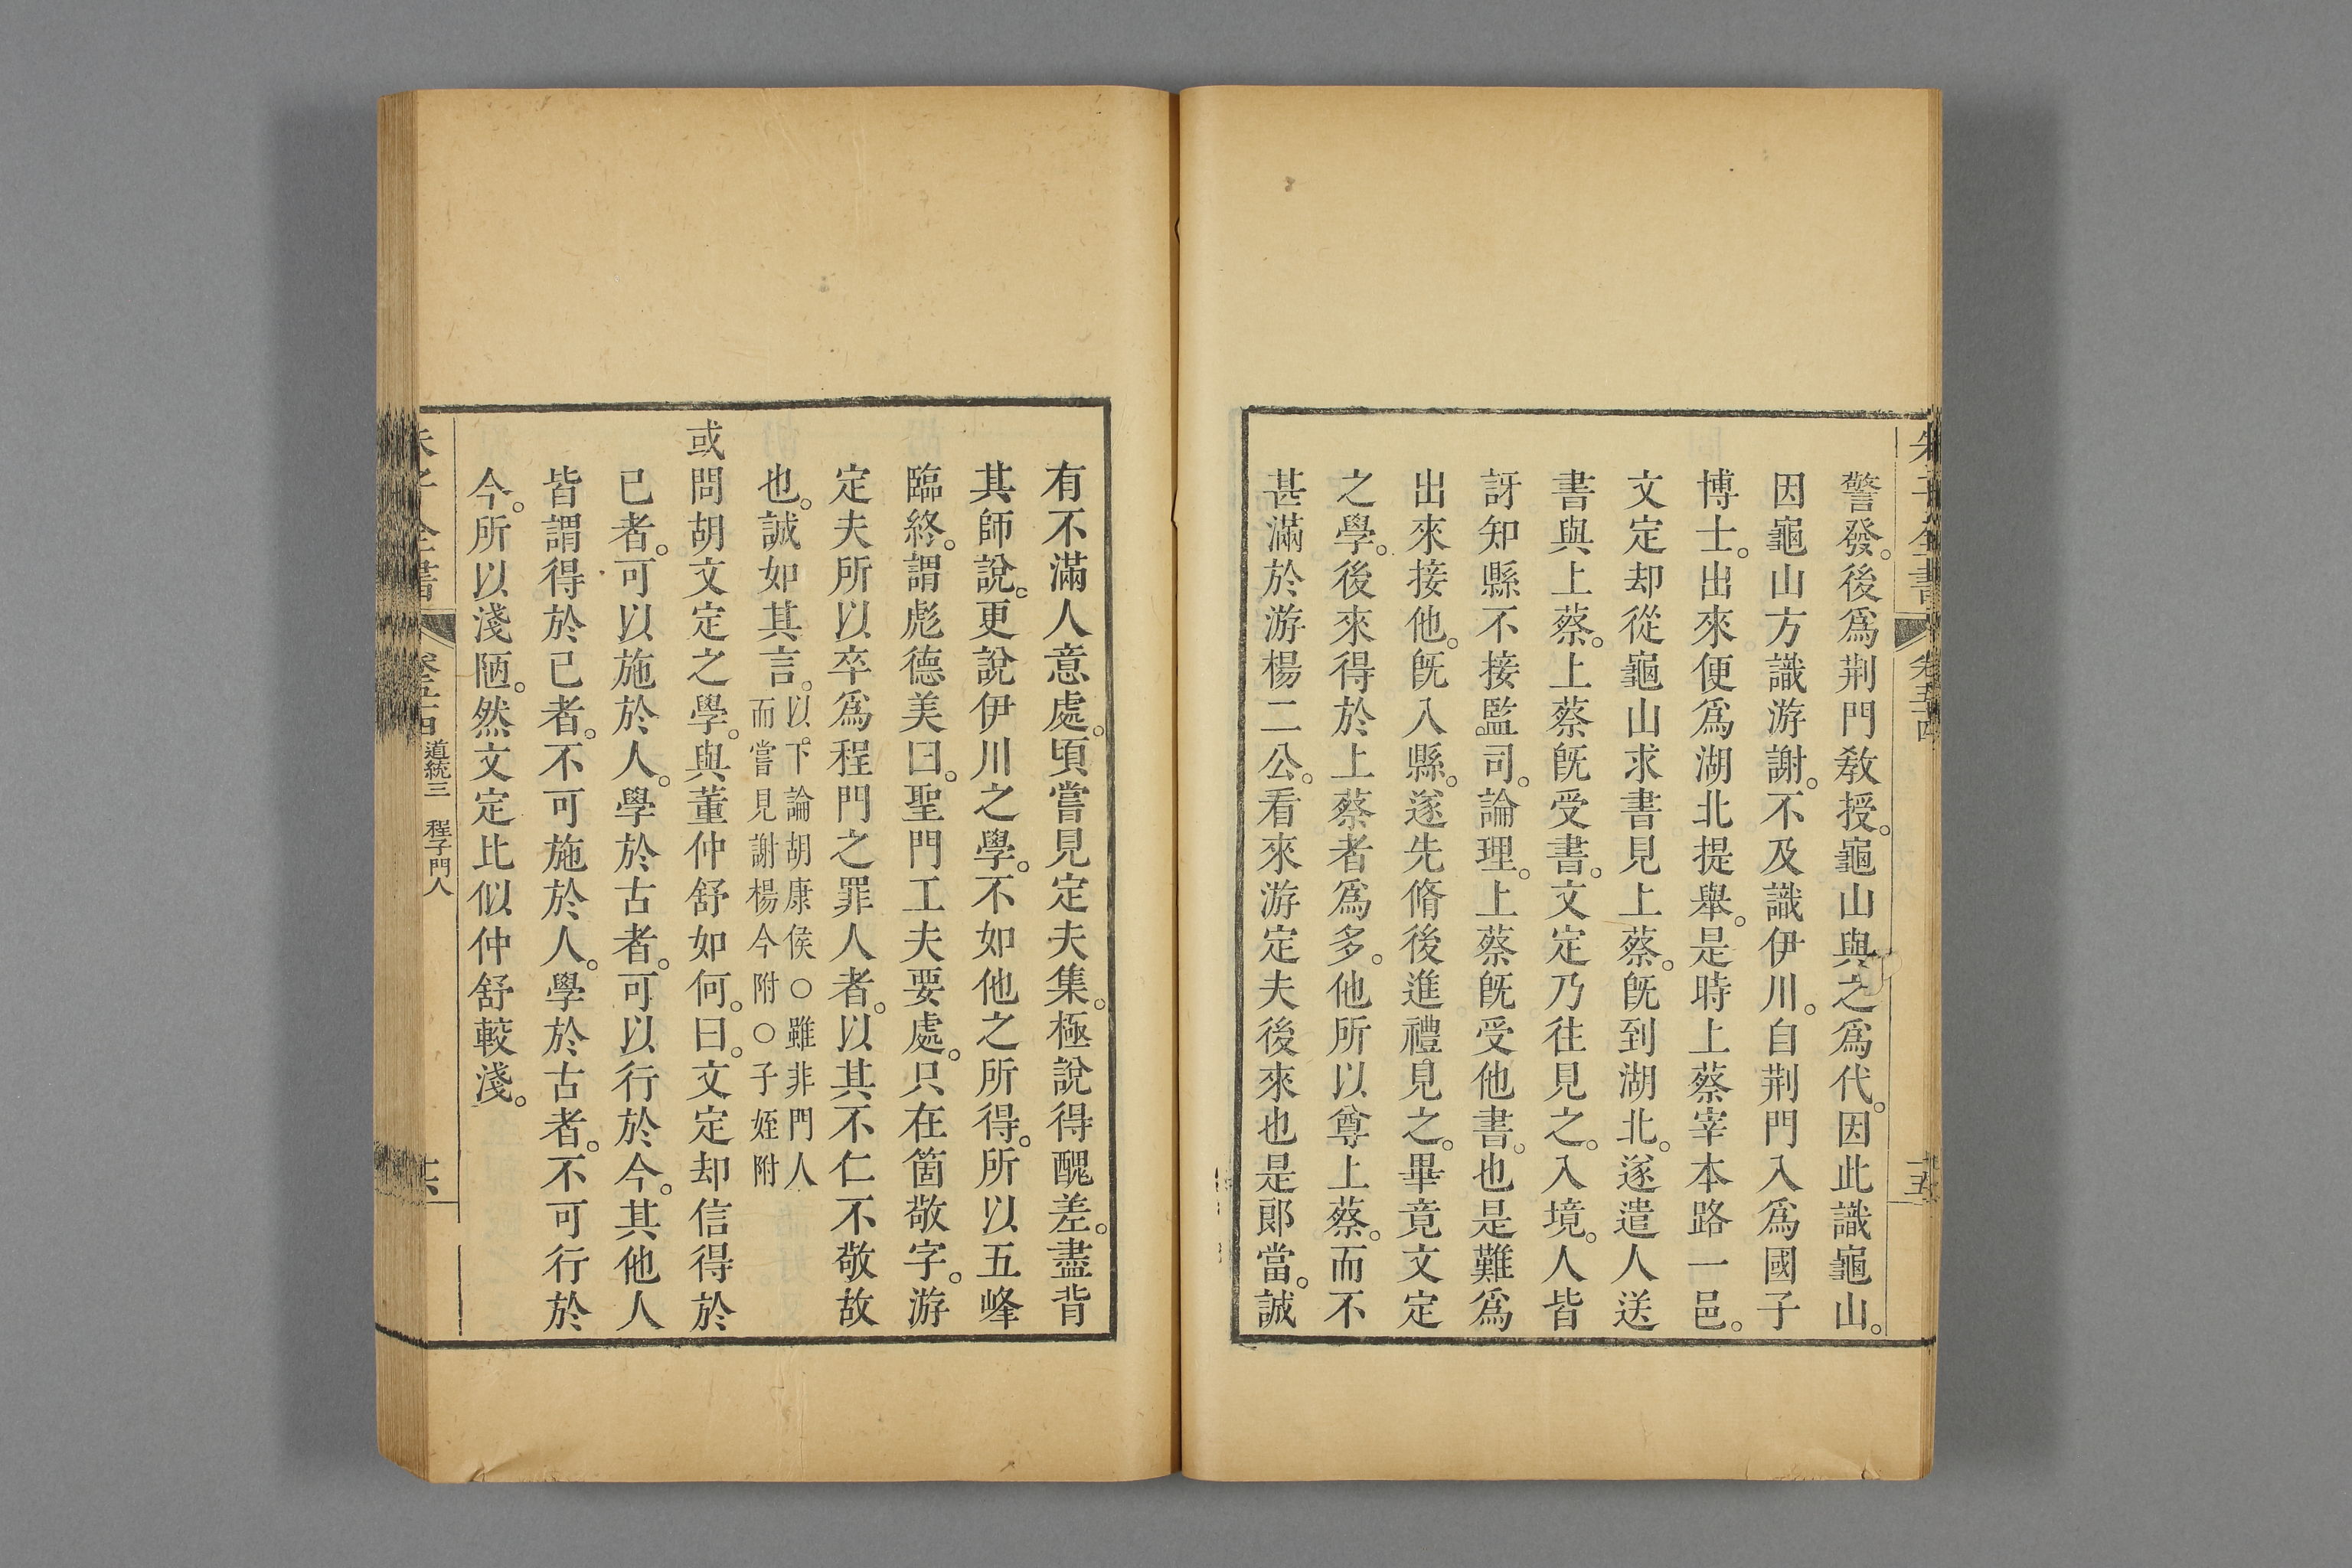 朱子全書 卷五十四 十五
警發。後爲荆門敎授。龜山與之爲代。因此識龜山。
因龜山方識游謝。不及識伊川。自荆門入爲國子
博士。出來便爲湖北提舉。是時上蔡宰本路一邑。
文定却從龜山求書見上蔡。旣到湖北。遂遣人送
書與上蔡。上蔡旣受書。文定乃往見之。入境。人皆
訝知縣不接監司。論理。上蔡旣受他書。也是難爲
出來接他。旣入縣。遂先脩後進禮見之。畢竟文定
之學。後來得於上蔡者爲多。他所以尊上蔡。而不
甚滿於游楊二公。看來游定夫後來也是郎當。誠
有不滿人意處。頃嘗見定夫集。極說得醜差。盡背
其師說。更說伊川之學。不如他之所得。所以五峰
臨終。謂彪德美曰。聖門工夫要處。只在箇敬字。游
定夫所以卒爲程門之罪人者。以其不仁不敬故
也。誠如其言。以下論胡康侯○雖非門人
而嘗見謝楊今附○子姪附
或問胡文定之學。與董仲舒如何。曰。文定却信得於
已者。可以施於人。學於古者。可以行於今。其他人
皆謂得於已者。不可施於人。學於古者。不可行於
今。所以淺陋。然文定比似仲舒較淺。
朱子全書 卷五十四 道統三 程子門人 十六